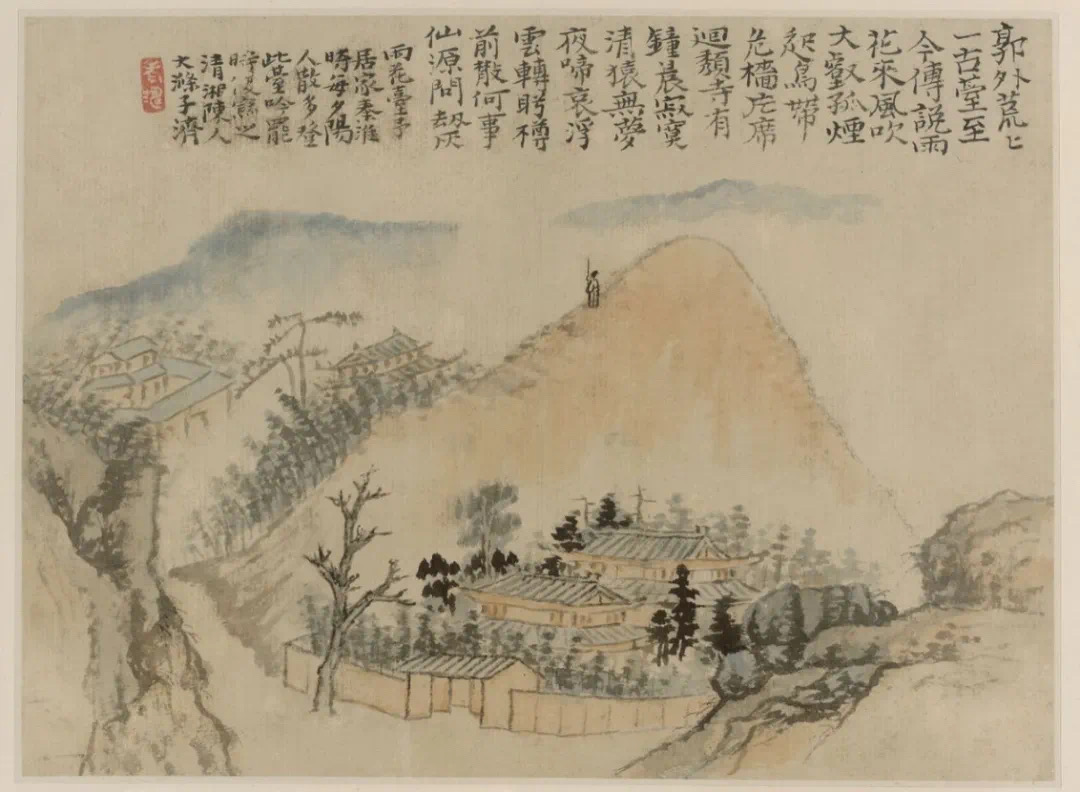 郭外荒〻
一古臺至
今傳說雨
花來風吹
大壑孤煙
起鳥帶
危檣片席
迴頹寺有
鐘晨寂寞
清猿無夢
夜啼哀浮
雲轉眄樽
前散何事
仙源問劫灰
雨花臺予
居家秦淮
時每夕陽
人散多登
此臺吟罷
時復寫之
清湘陳人
大滌子濟